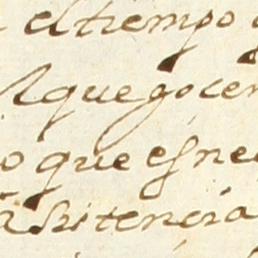 el tiempo
que gocen
o que es nec
asistencia